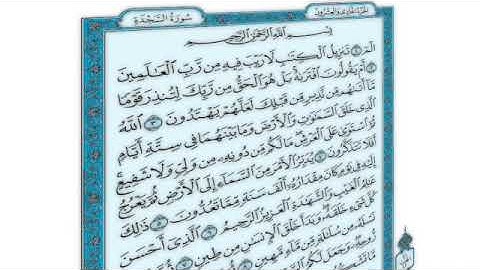 الجزء الحادي والعشرون
سُورَةُ السَّجْدَةِ
بِسْمِ اللَّهِ الرَّحْمَٰنِ الرَّحِيمِ
الٓمٓ ١ تَنزِيلُ ٱلْكِتَٰبِ لَا رَيْبَ فِيهِ مِن رَّبِّ ٱلْعَٰلَمِينَ ٢
أَمْ يَقُولُونَ ٱفْتَرَىٰهُ بَلْ هُوَ ٱلْحَقُّ مِن رَّبِّكَ لِتُنذِرَ قَوْمًا
مَّآ أَتَىٰهُم مِّن نَّذِيرٍ مِّن قَبْلِكَ لَعَلَّهُمْ يَهْتَدُونَ ٣ ٱللَّهُ
ٱلَّذِى خَلَقَ ٱلسَّمَٰوَٰتِ وَٱلْأَرْضَ وَمَا بَيْنَهُمَا فِى سِتَّةِ أَيَّامٍ
ثُمَّ ٱسْتَوَىٰ عَلَى ٱلْعَرْشِ مَا لَكُم مِّن دُونِهِۦ مِن وَلِىٍّ وَلَا شَفِيعٍ
أَفَلَا تَتَذَكَّرُونَ ٤ يُدَبِّرُ ٱلْأَمْرَ مِنَ ٱلسَّمَآءِ إِلَى ٱلْأَرْضِ ثُمَّ يَعْرُجُ
إِلَيْهِ فِى يَوْمٍ كَانَ مِقْدَارُهُۥٓ أَلْفَ سَنَةٍ مِّمَّا تَعُدُّونَ ٥ ذَٰلِكَ
عَٰلِمُ ٱلْغَيْبِ وَٱلشَّهَٰدَةِ ٱلْعَزِيزُ ٱلرَّحِيمُ ٦ ٱلَّذِىٓ أَحْسَنَ
كُلَّ شَىْءٍ خَلَقَهُۥ وَبَدَأَ خَلْقَ ٱلْإِنسَٰنِ مِن طِينٍ ٧ ثُمَّ جَعَلَ
نَسْلَهُۥ مِن سُلَٰلَةٍ مِّن مَّآءٍ مَّهِينٍ ٨
رُّوحِهِۦ وَجَعَلَ لَكُمُ